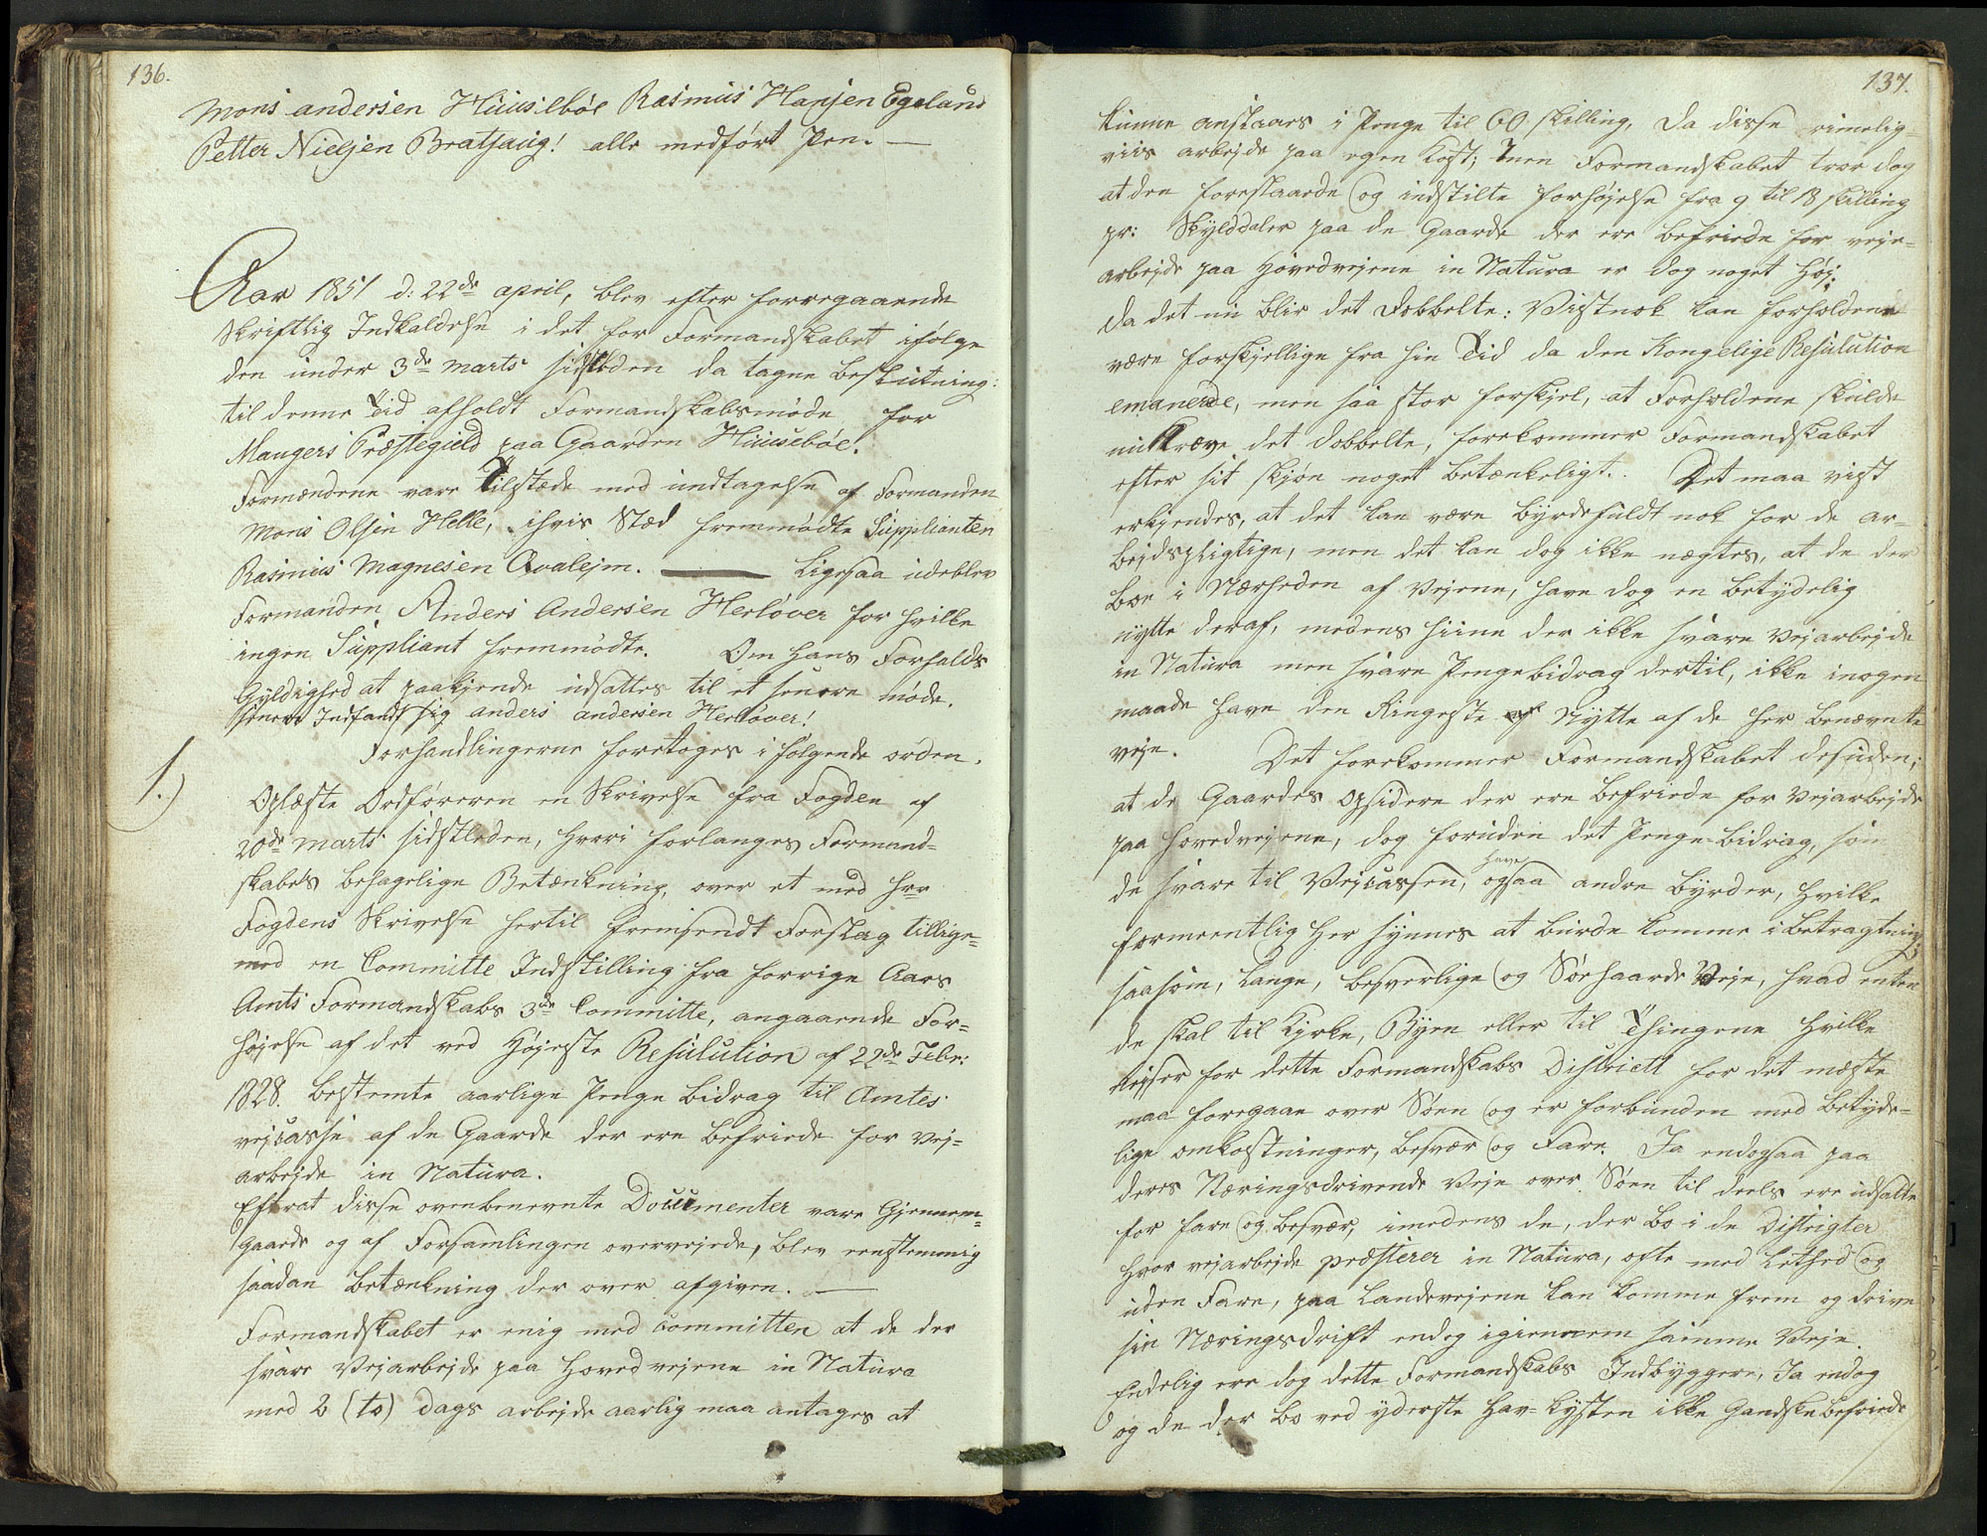 136.
Mons andersen Huusebøe Rasmus Hansen Egeland
Petter Nielsen Brathaug! alle medført Pen. —
Aar 1851 d: 22de april, blev efter forregaaende
Skriftlig Indkaldelse i det for Formandskabet ifølge
den under 3de Marts sidstleden da tagne Beslutning:
til denne Tid afholdt Formandskabsmøde for
Mangers Præstegield paa Gaarden Huusebøe.
Formændene vare tilstæde med undtagelse af Formanden
Mons Olsen Helle, ihvis Stæd fremmødte Supplianten
Rasmus Magnesen Qvalejm. — Ligesaa udeblev
Formanden Anders Andersen Herløver for hvilke
ingen Suppliant fremmødte. Om hans Forfalds
Gyldighed at paakjende udsattes til et senere møde.
senere Indfandt sig anders andersen Herløver!
Forhandlingerne foretoges i følgende orden.
1.)
Oplæste Ordføreren en Skrivelse fra Fogden af
20de Marts sidstleden, hvori forlanges Formand=
skabets behagelige Betænkning, over et med Hrr
Fogdens Skrivelse hertil fremsendt Forslag tillige=
med en Committe Indstilling fra forrige Aars
Amts Formandskabs 3de Committe, angaaende For=
højelse af det ved Højeste Resulution af 22de Febr:
1828. bestemte aarlige Penge Bidrag til Amtes
vejcasse af de Gaarde der ere befriede for Vej=
arbejde in Natura.
Efterat disse ovenbenevnte Documenter vare Gjennem=
gaaede og af Forsamlingen overvejede, blev eenstemmig
saadan Betænkning der over afgiven. —
Formandskabet er enig med Committen at de der
svare Vejarbejde paa Hovedvejene in Natura
med 2 (to) Dags arbejde aarlig maa antages at
137.
kunne anslaaes i Penge til 60 skilling, da disse rimelig=
viis arbejde paa egen Kost; men Formandskabet tror dog
at den foreslaaede og indstilte forhøjelse fra 9 til 18 skilling
pr: Skylddaler paa de Gaarde der ere befriede for veje=
arbejde paa Hovedvejene in Natura er dog noget Høj:
da det nu blir det dobbelte: Vistnok kan forholdene
være forskjellige fra hin Tid da den Kongelige Resulution
emanerede, men saa stor forskjel, at Forholdene skulde
nu kræve det dobbelte, forekommer Formandskabet
efter sit skjøn noget betænkeligt. Det maa vist
erkjendes, at det kan være byrdefuldt nok for de ar=
bejdspligtige, men det kan dog ikke nægtes, at de der
boe i Nærheden af Vejene, have dog en betydelig
nytte deraf, medens hiine der ikke svare Vejarbejde
in Natura men svare Pengebidrag dertil, ikke inogen
maade have den Ringeste Nytte af de her benævnte
veje. Det forekommer Formandskabet desuden;
at de Gaardes Opsidere der ere befriede for Vejarbejde
paa Hovedvejene, dog foruden det Penge-Bidrag, som
de svare til Vejcassen, have ogsaa andre byrder, hvilke
formeentlig her synnes at burde komme i betragtning,
saasom, lange, besverlige og Søehaarde Veje, hvad enten
de skal til Kjrke, Byen eller til Thingene hvilke
rejser for dette Formandskabs District for det meste
maa foregaae over Søen og er forbunden med betyde=
lige omkostninger, besvær og Fare. Ja endogsaa paa
deres Næringsdrivende Veje over Søen til deels ere udsatte
for fare og besvær, imedens de, der bo i de Districter
hvor vejarbejde præsterer in Natura, ofte med Lethed og
uden Fare, paa Landevejene kan komme frem og drive
sin Næringsdrift endog igiennem samme Veje.
Endelig ere dog dette Formandskabs Indbyggere, Ja endog
og de der bo ved yderste Hav-kysten ikke gandske befriede